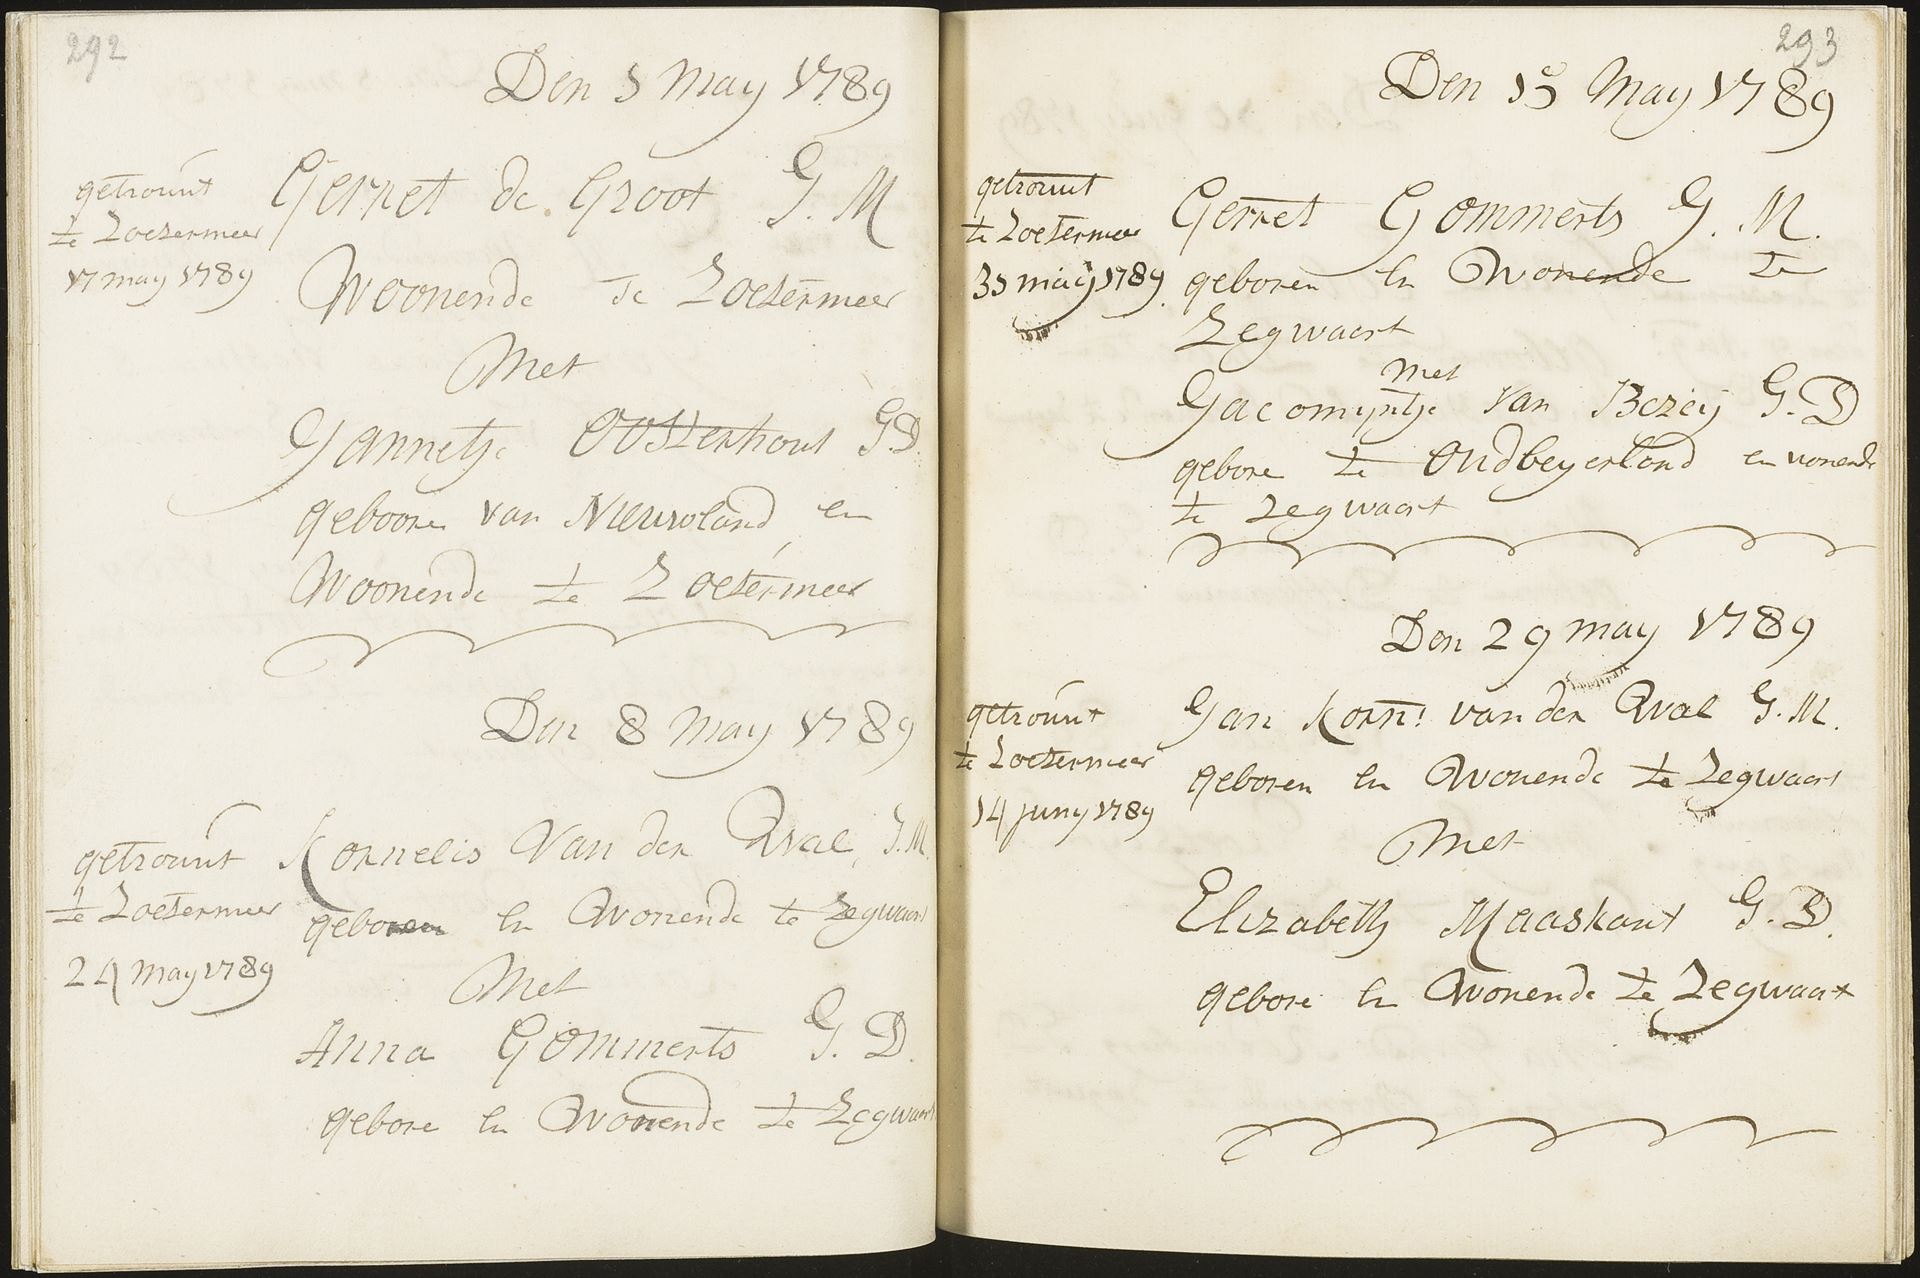 292
Den 5 May 1789
getrouwt
te Zoetermeer
17 may 1789
Gerret de Groot J. M
Woonende Te Zoetermeer
Met
Jannetje Oosterhout J. D.
geboore van Nieuwland en
Woonende te Zoetermeer
Den 8 May 1789
getrouwt
te Zoetermeer
24 may 1789
Kornelis Van der Qval, J. M.
geboren En Wonende te Zegwaart
Met
Anna Gommerts J. D.
gebore En Wonende te Zegwaart
293
Den 15 May 1789
getrouwt
te Zoetermeer
31 maij 1789
Gerret Gommerts J. M.
geboren En Wonende te
Zegwaart
Met
Jacomijntje Van Bezeij J. D
gebore te Oudbeyerland en wonende
te Zegwaart
Den 29 may 1789
getrouwt
te Zoetermeer
14 juny 1789
Jan Korns: van der Qval J. M.
geboren En Wonende te Zegwaart
Met
Elizabeth Maaskant J. D.
gebore En Wonende te Zegwaart